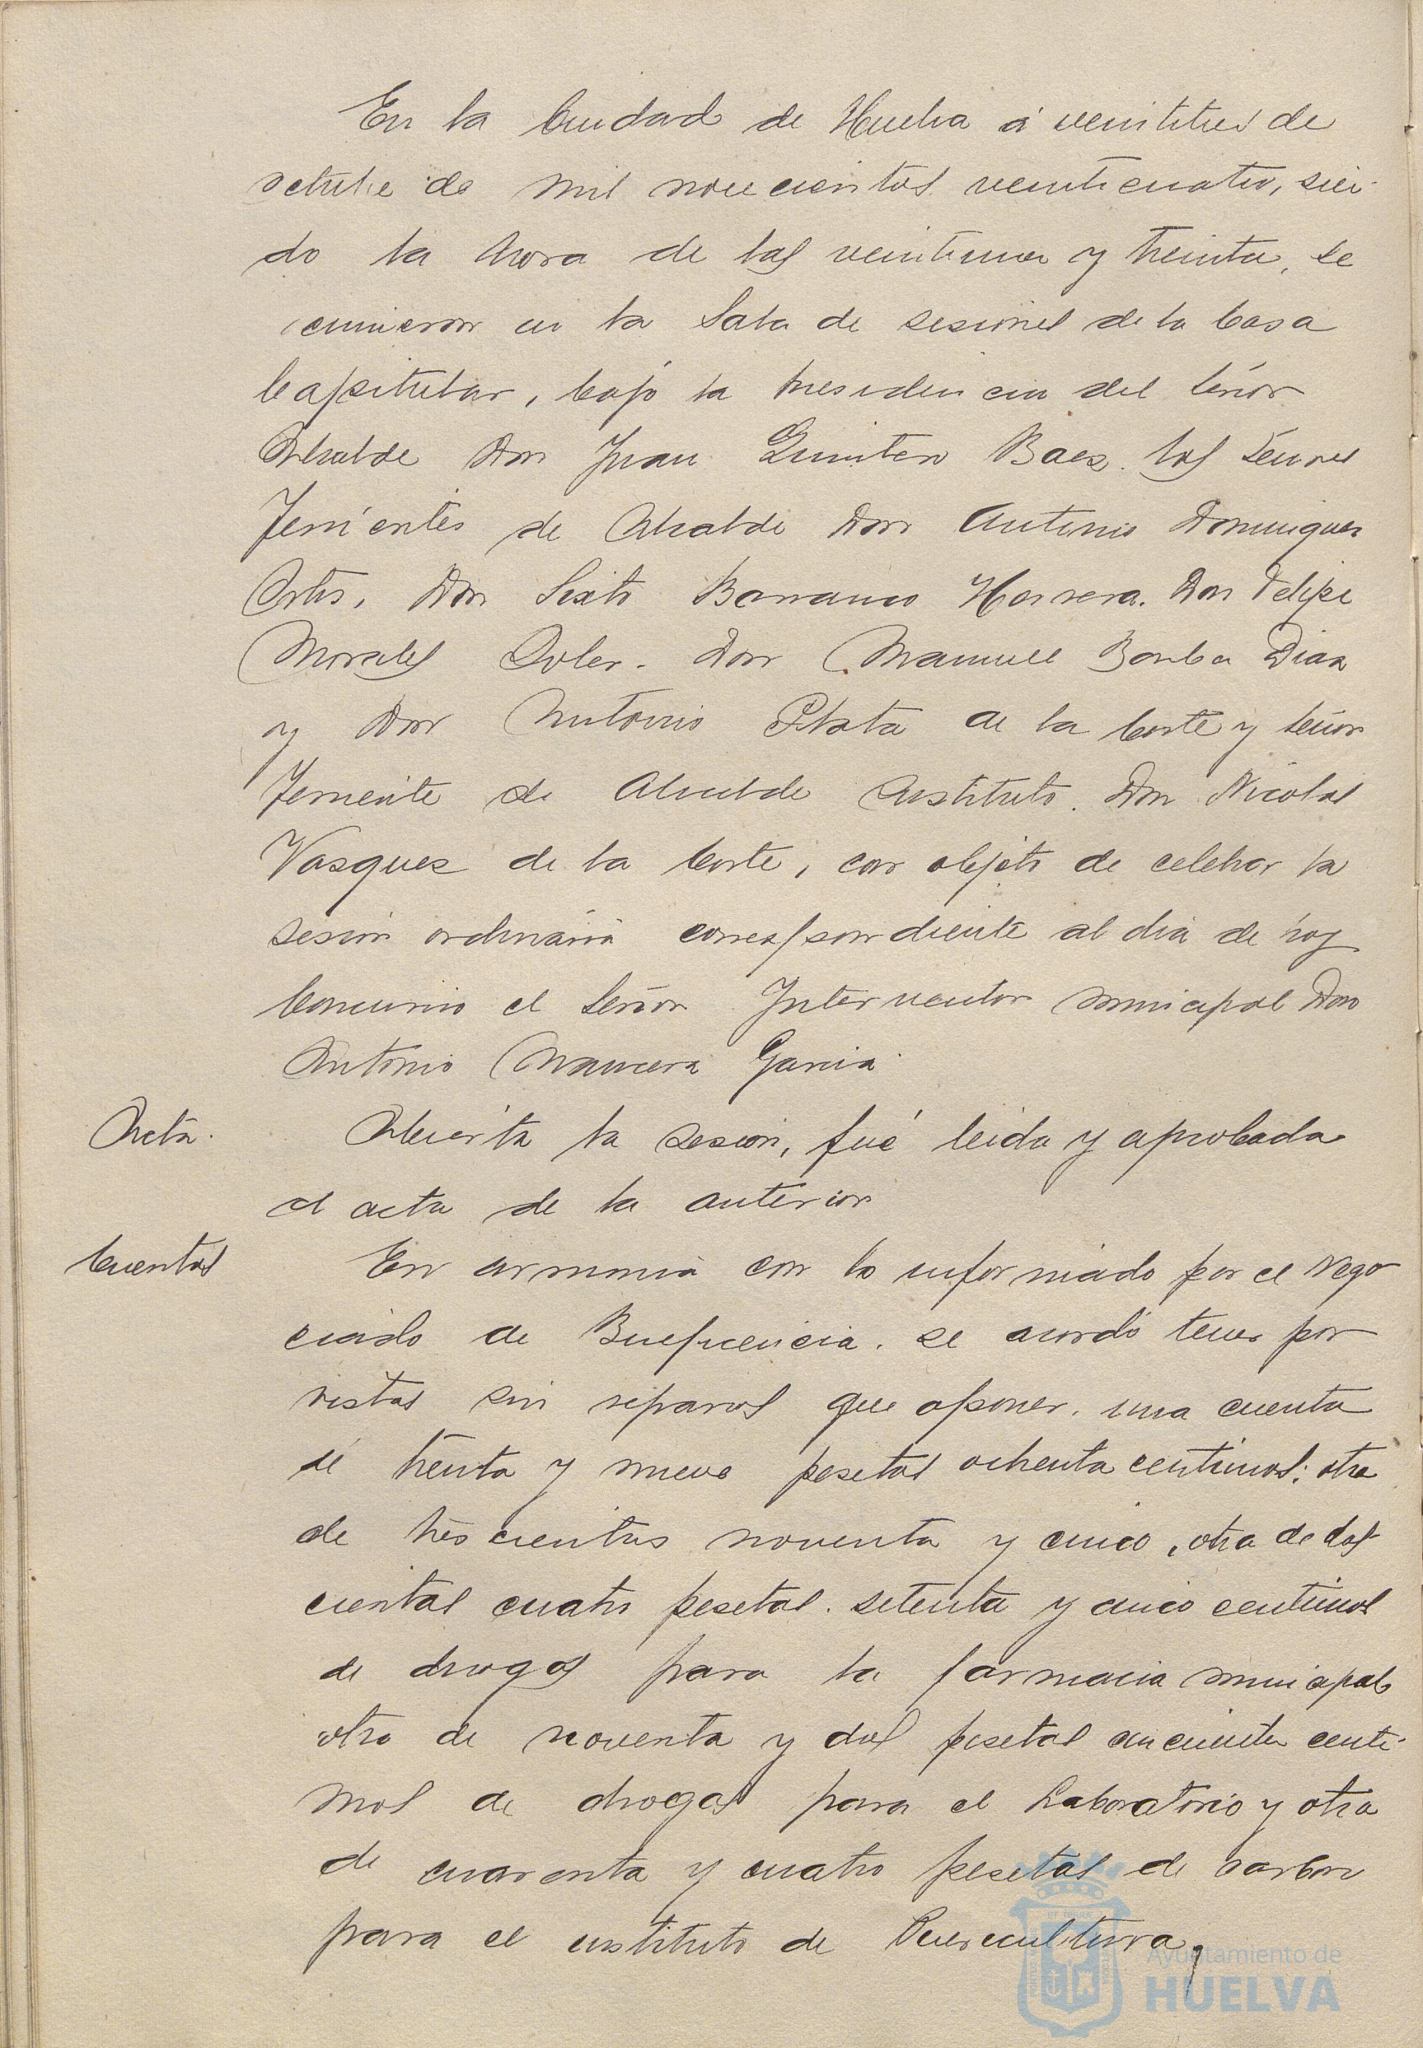 En la Ciudad de Huelva á veintitres de
octubre de mil novecientos veinticuatro, sien-
do la hora de las veintiuna y treinta, se
reunieron en la Sala de sesiones de la Casa
Capitular, bajo la presidencia del señor
Alcalde Don Juan Quintero Baez. los Señores
Tenientes de Alcalde Don Antonio Dominguez
Ortis, Don Sixto Barranco Herrera. Don Felipe
Morales Soler. Don Manuel Borba Diaz
y Don Antonio Plata de la Corte y señor
Teniente de Alcalde Sustituto. Don Nicolas
Vasquez de la Corte, con objeto de celebrar la
sesion ordinaria correspondiente al dia de hoy
Concurrio el Señor Interventor municipal Don
Antonio Mancera Garcia.
Acta.
Abierta la sesion, fué leida y aprobada
el acta de la anterior
Cuentas
En armonia con lo informado por el Nego
ciado de Beneficencia. se acordó tener por
vistas sin reparos que oponer. una cuenta
de treinta y nueve pesetas ochenta centimos; otra
de trescientas noventa y cinco, otra de dos-
cientas cuatro pesetas. setenta y cinco centimos
de drogas para la farmacia municipal
otra de noventa y dos pesetas cincuenta centi-
mos de drogas para el Laboratorio y otra
de cuarenta y cuatro pesetas de carbon
para el instituto de Puericultura,
Ayuntamiento de
HUELVA